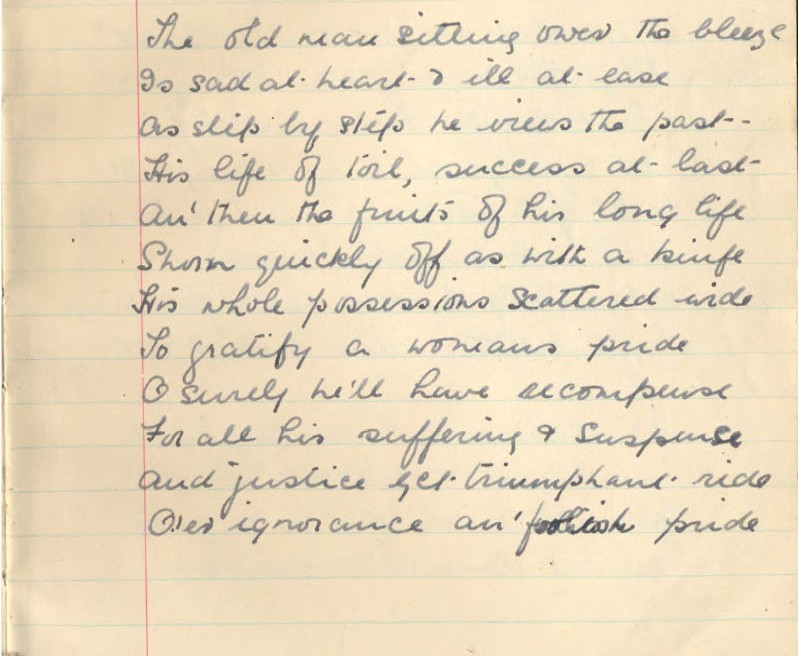 The old man sitting ower the bleeze
Is sad at heart & ill at ease
As step by step he views the past
His life of toil, success at last
An' then the fruits of his long life
Shorn quickly off as with a knife
His whole possessions scattered wide
To gratify a womans pride
O surely he'll have recompense
For all his suffering & suspense
And justice yet triumphant ride
O'er ignorance an' foolish pride